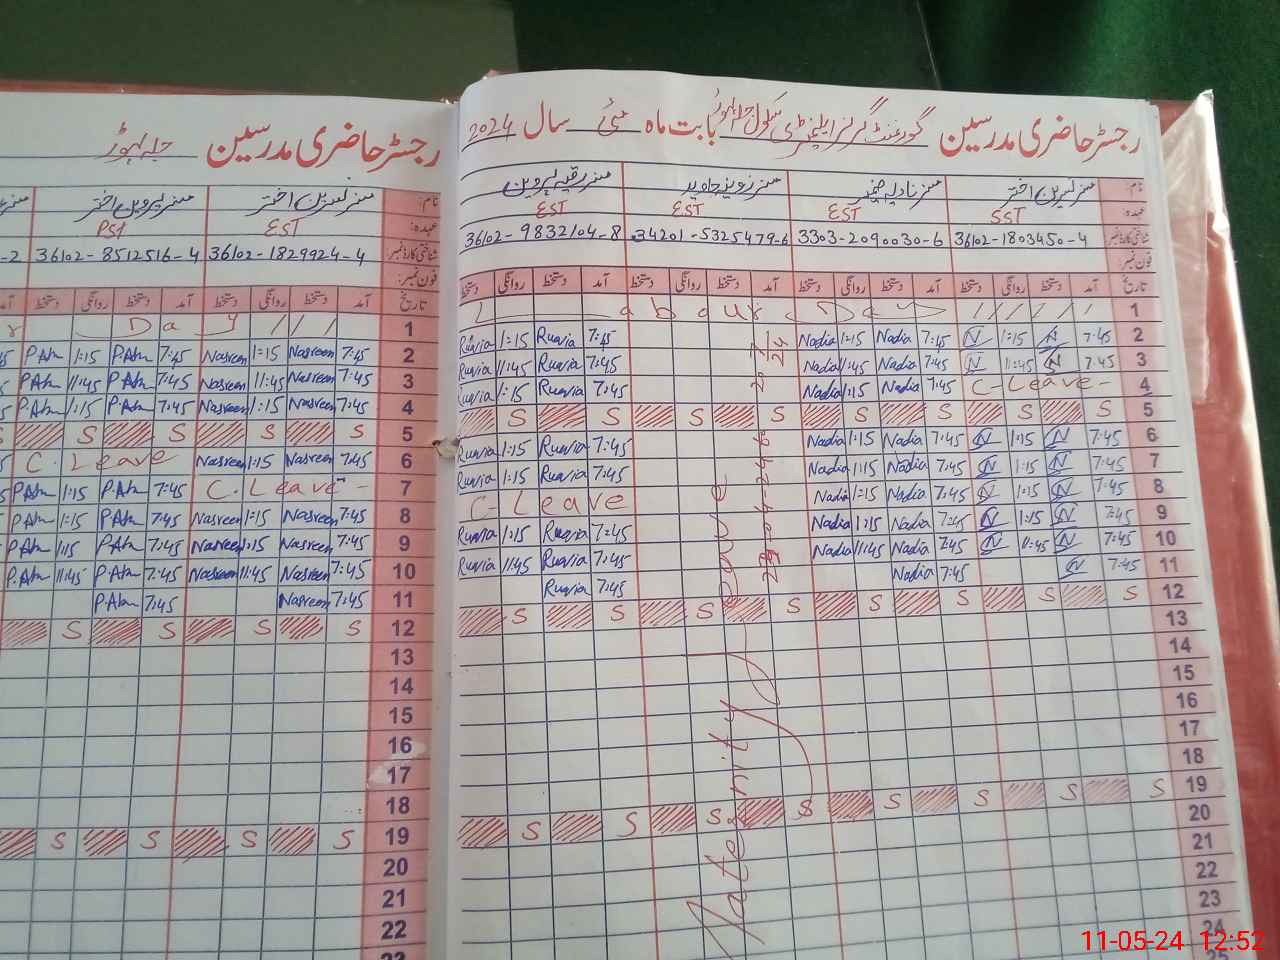 رجسٹر حاضری مدرسین گورنمنٹ گرلز ایلیمنٹری سکول بابت ماہ مئی سال 2024
نام: مسز نسرین اختر مسز نادیہ مسز رقیہ پروین
عہدہ: SST EST EST EST
شناختی کارڈ نمبر 36102-1803450-4 3303-2090030-6 34201-5325479-6 36102-9832104-8
فون نمبر:
تاریخ آمد دستخط روانگی دستخط آمد دستخط روانگی دستخط آمد دستخط روانگی دستخط آمد دستخط روانگی دستخط
1 Labour Day
2 7:45 N 1:15 N 7:45 Nadia 1:15 Nadia 7:45 Ruqia 1:15 Ruqia
3 7:45 N 11:45 N 7:45 Nadia 11:45 Nadia 7:45 Ruqia 11:45 Ruqia
4 C-Leave- 7:45 Nadia 1:15 Nadia 7:45 Ruqia 1:15 Ruqia
5 S S S S S S S S
6 7:45 N 1:15 N 7:45 Nadia 1:15 Nadia 7:45 Ruqia 1:15 Ruqia
7 7:45 N 1:15 N 7:45 Nadia 1:15 Nadia 7:45 Ruqia 1:15 Ruqia
8 7:45 N 1:15 N 7:45 Nadia 1:15 Nadia C-Leave
9 7:45 N 1:15 N 7:45 Nadia 1:15 Nadia 7:45 Ruqia 1:15 Ruqia
10 7:45 N 11:45 N 7:45 Nadia 11:45 Nadia 7:45 Ruqia 11:45 Ruqia
11 7:45 N 7:45 Nadia 7:45 Ruqia
12 S S S S S S S S
13
14
15
16
17
18
19 S S S S S S S S
20
21
22
23
24
25
Maternity Leave
رجسٹر حاضری مدرسین
نام: مسز نسرین اختر مسز پروین اختر
عہدہ: EST PST
شناختی کارڈ نمبر 36102-1829924-4 36102-8512516-4 -2
فون نمبر:
تاریخ آمد دستخط روانگی دستخط آمد دستخط روانگی دستخط آمد
1 r Day
2 7:45 Nasreen 1:15 Nasreen 7:45 P.Atn 1:15 P.Atn
3 7:45 Nasreen 11:45 Nasreen 7:45 P.Atn 11:45 P.Atn
4 7:45 Nasreen 1:15 Nasreen 7:45 P.Atn 1:15 P.Atn
5 S S S S S
6 7:45 Nasreen 1:15 Nasreen C. Leave
7 C. Leave - 7:45 P.Atn 1:15 P.Atn
8 7:45 Nasreen 1:15 Nasreen 7:45 P.Atn 1:15 P.Atn
9 7:45 Nasreen 1:15 Nasreen 7:45 P.Atn 1:15 P.Atn
10 7:45 Nasreen 11:45 Nasreen 7:45 P.Atn 11:45 P.Atn
11 7:45 Nasreen 7:45 P.Atn
12 S S S S
13
14
15
16
17
18
19 S S S S
20
21
22
23
11-05-24 12:52